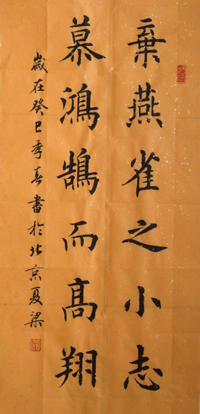 棄燕雀之小志
慕鴻鵠而高翔
歲在癸巳季春書於北京夏梁